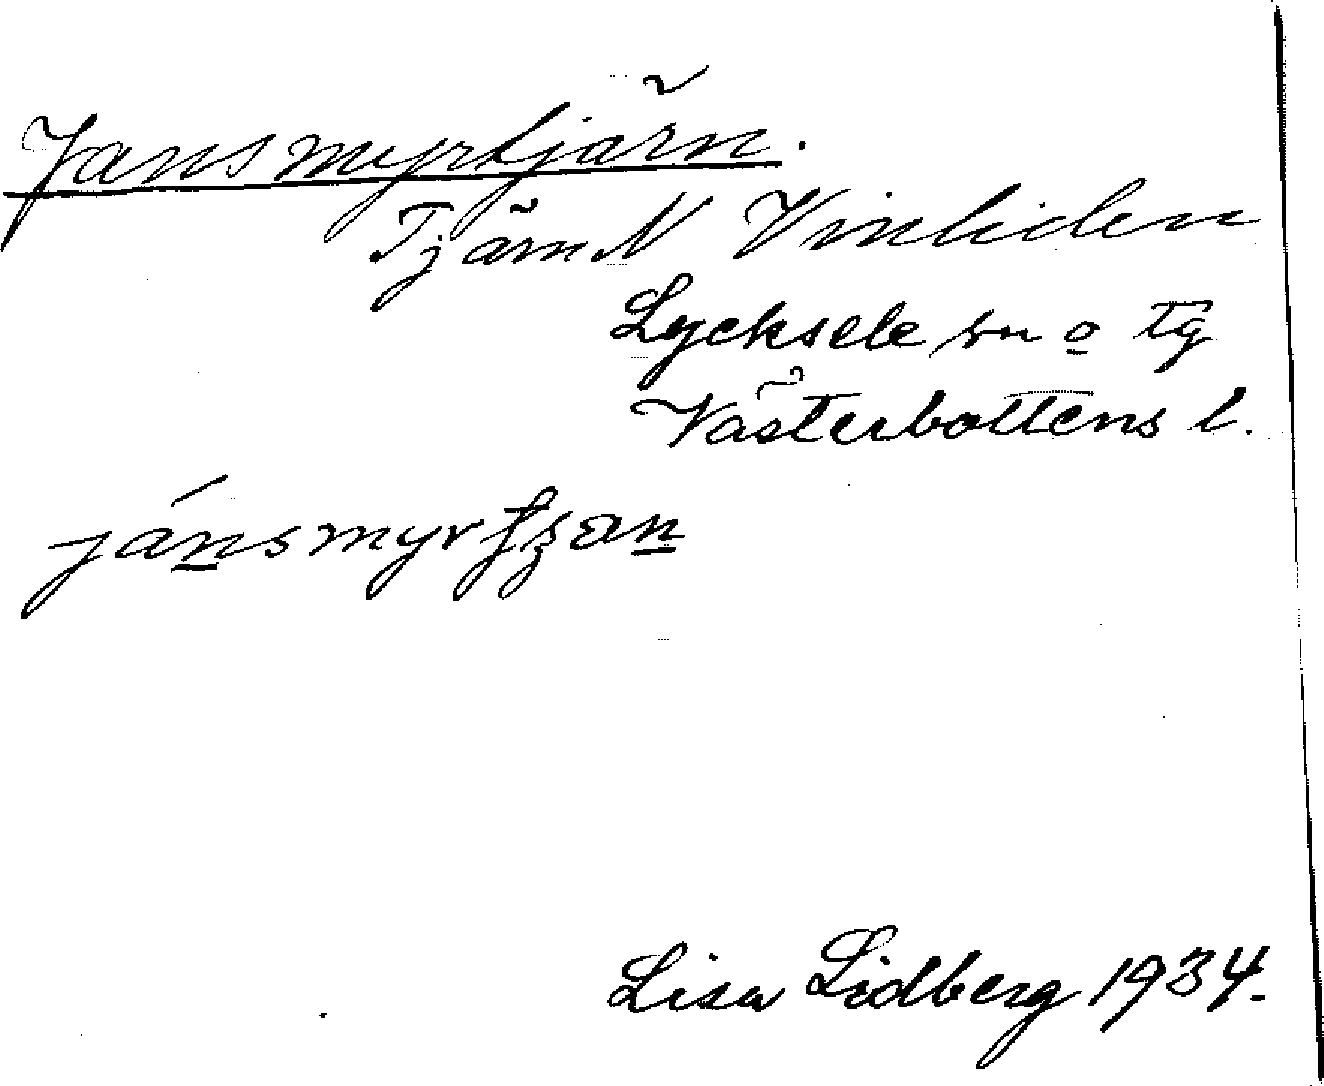 Jansmyrtjärn.
Tjärn N Vinliden
Lycksele sn o tg
Västerbottens l.
Lisa Lidberg 1934.